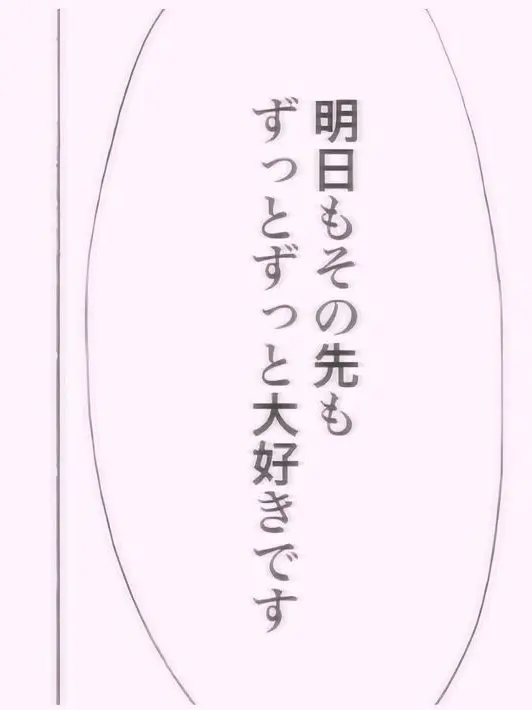 明日もその先も
ずっとずっと大好きです